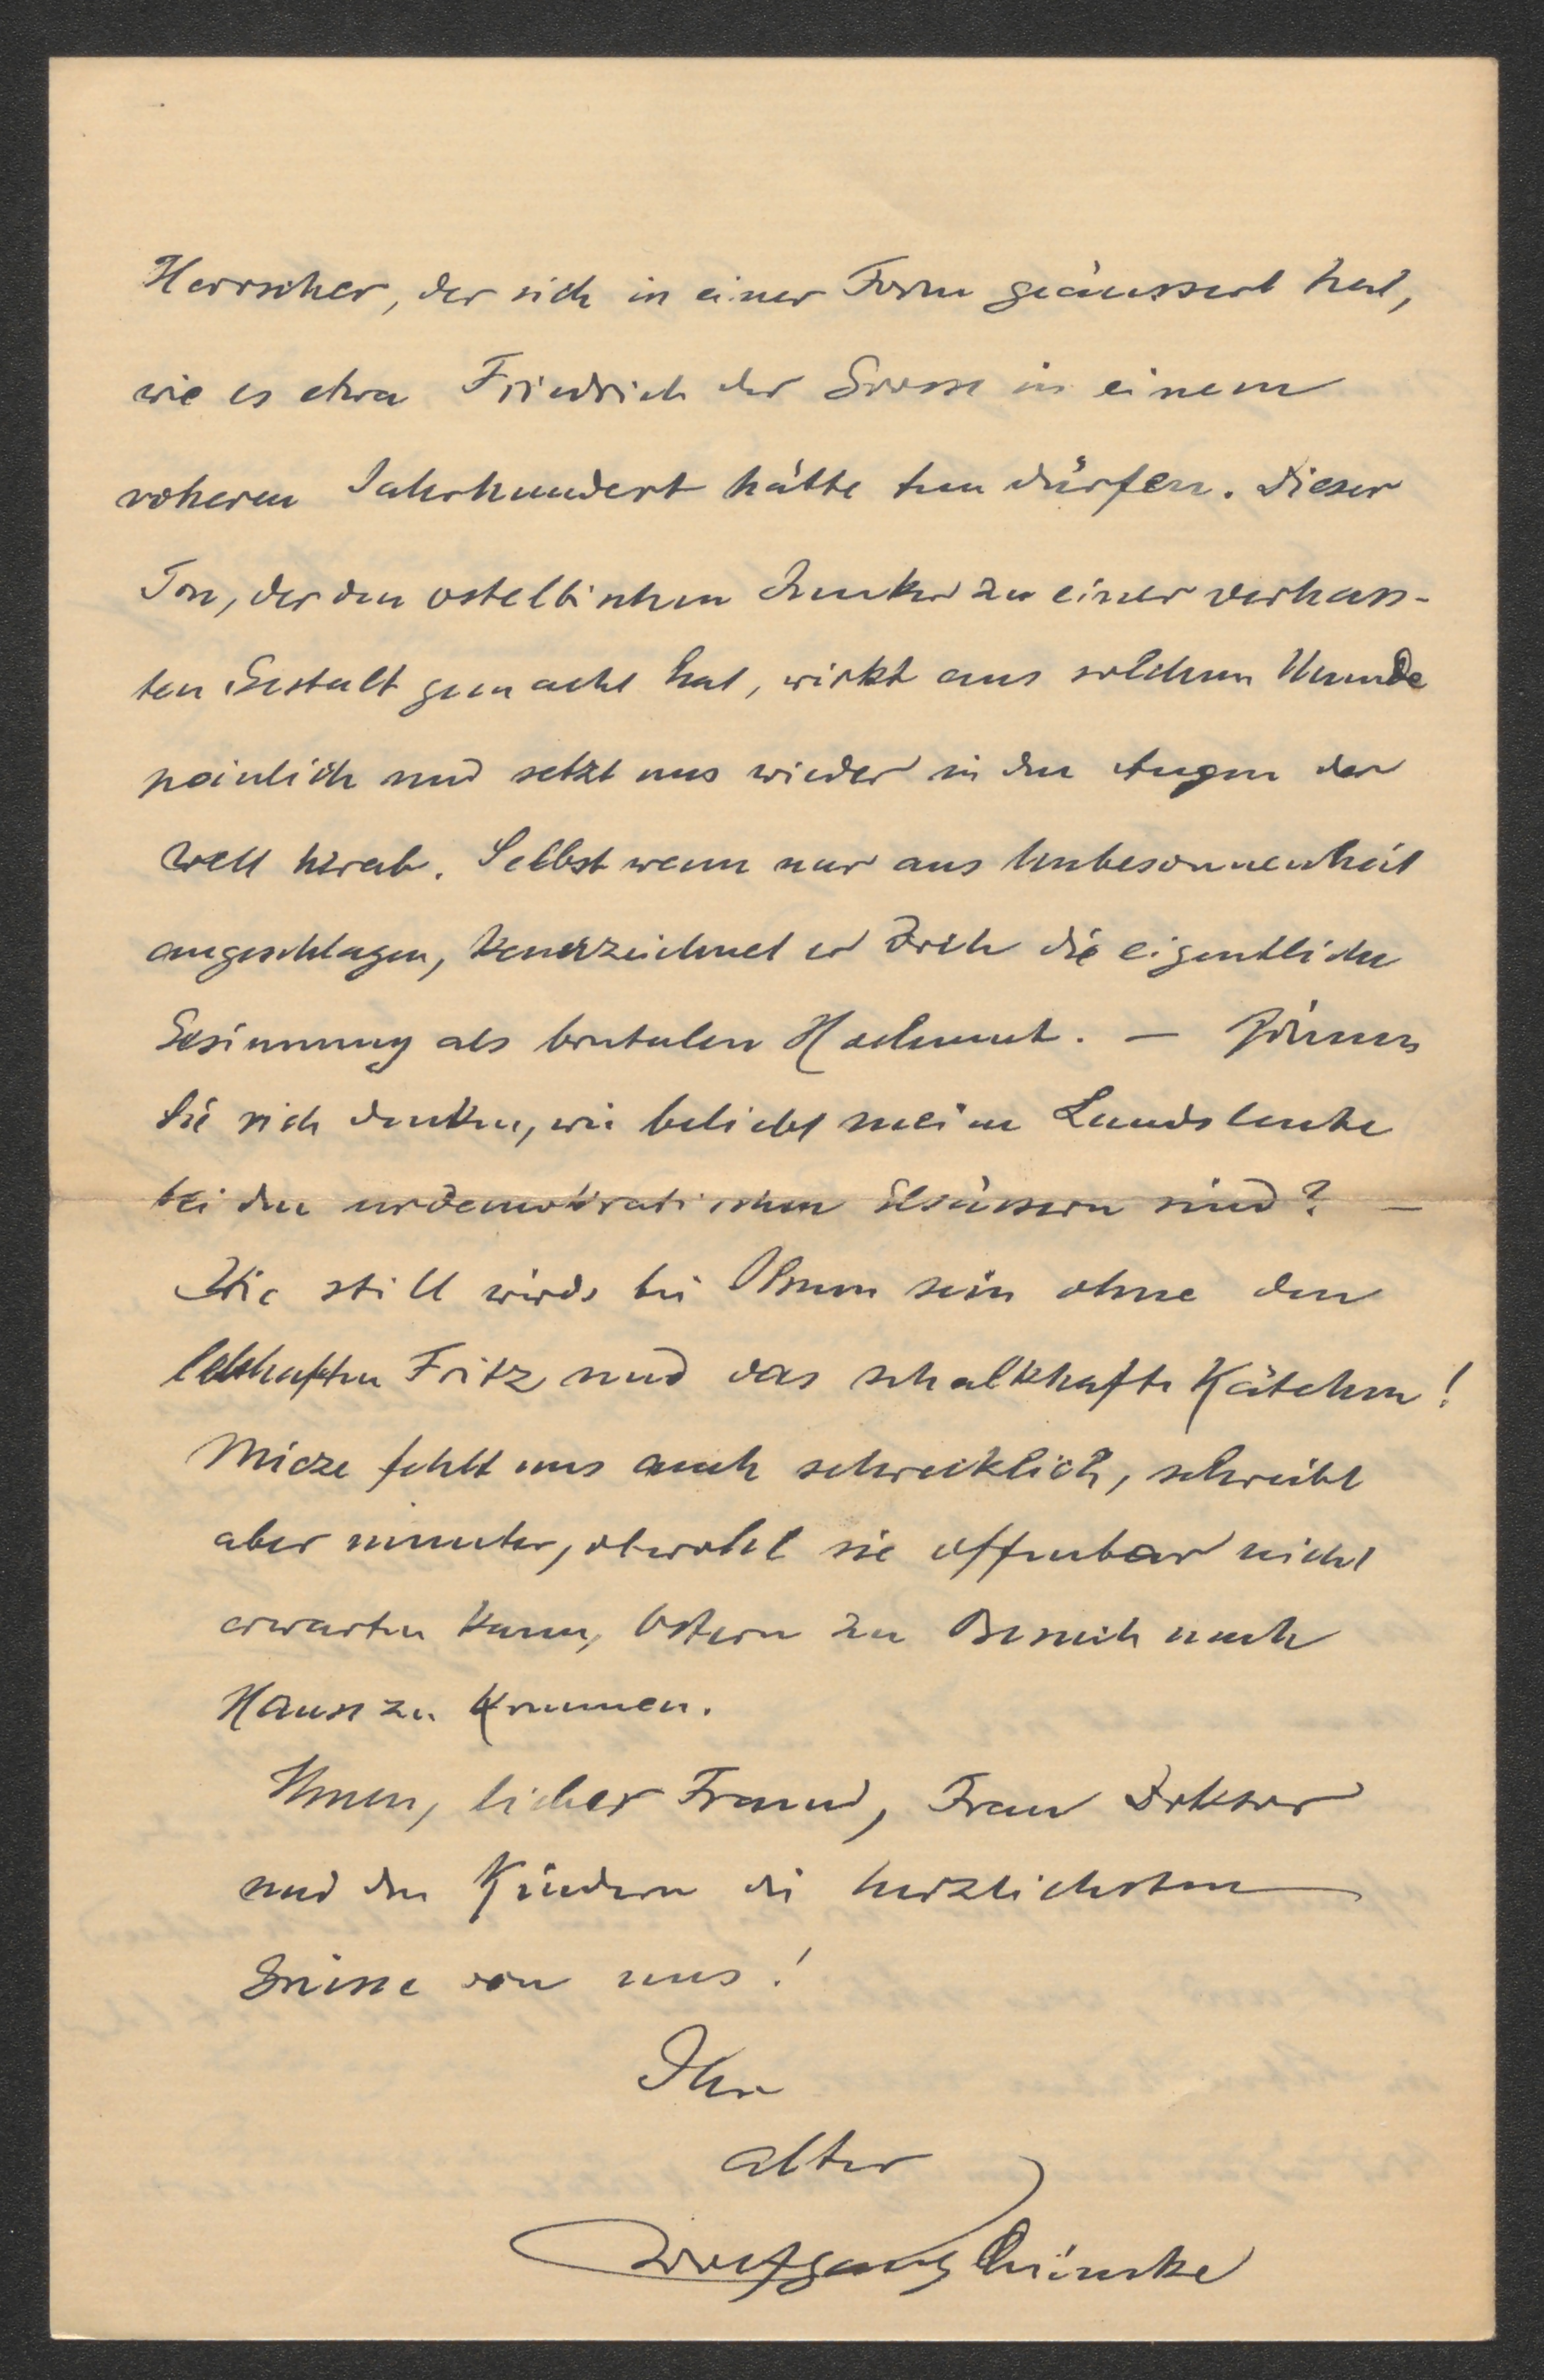 Herrscher, der sich in einer Form geäussert hat,
wie es etwa Friedrich der Grosse in einem
roheren Jahrhundert hätte tun dürfen. Dieser
Ton, der den ostelbischen Junker zu einer verhass-
ten Gestalt gemacht hat, wirkt aus solchem Munde
peinlich und setzt uns wieder in den Augen der
Welt herab. Selbst wenn nur aus Unbesonnenheit
angeschlagen, kennzeichnet er doch die eigentliche
Gesinnung als brutalen Hochmut. — Können
Sie sich denken, wie beliebt meine Landsleute
bei den urdemokratischen Elsässern sind? —
Wie still wirds bei Ihnen sein ohne den
lebhaften Fritz und das schalkhafte Kätchen!
Mieze fehlt uns auch schrecklich, schreibt
aber munter, obwohl sie offenbar nicht
erwarten kann, Ostern zu Besuch nach
Hause zu kommen.
Ihnen, lieber Freund, Frau Doktor
und den Kindern die herzlichsten
Grüsse von uns!
Ihr
alter
Wolfgang